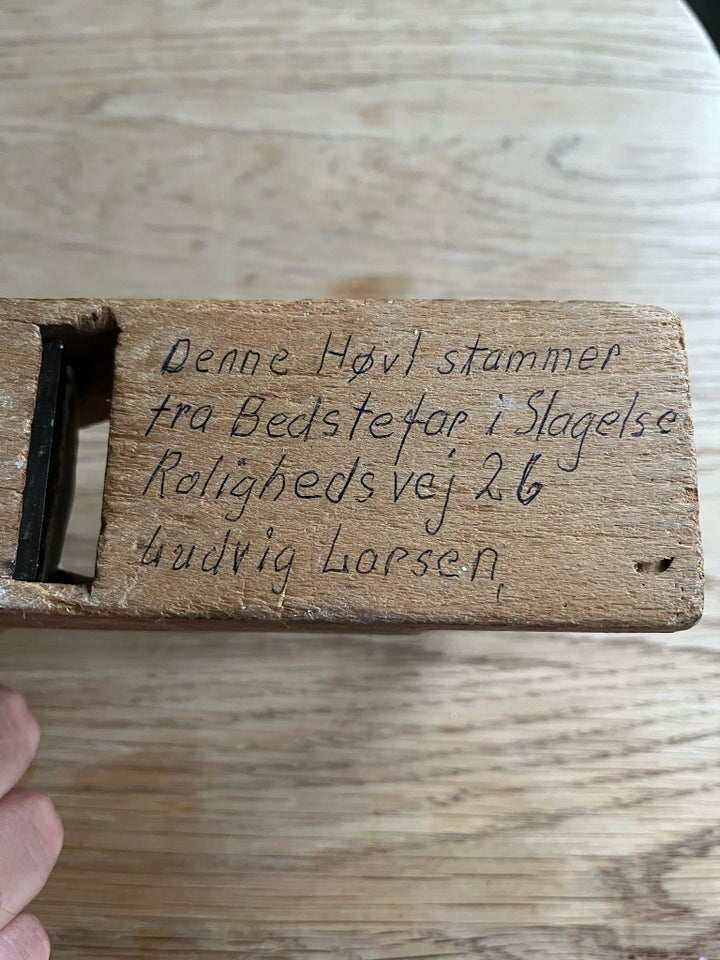 Denne Høvl stammer
fra Bedstefar i Slagelse
Rolighedsvej 26
Ludvig Larsen,